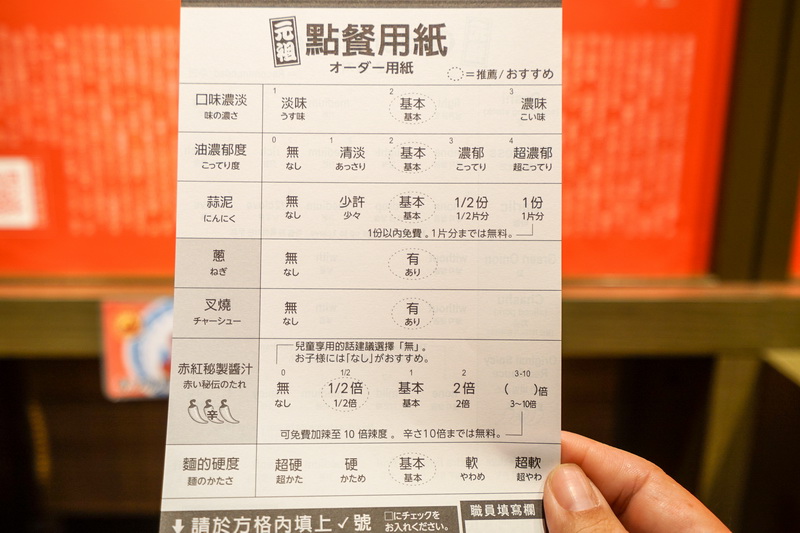 元祖 點餐用紙
オーダー用紙
=推薦/おすすめ
口味濃淡
味の濃さ
1 2 3
淡味 基本 濃味
うす味 基本 こい味
油濃郁度
こってり度
0 1 2 3 4
無 清淡 基本 濃郁 超濃郁
なし あっさり 基本 こってり 超こってり
蒜泥
にんにく
無 少許 基本 1/2份 1份
なし 少々 基本 1/2片分 1片分
1份以內免費。1片分までは無料。
蔥
ねぎ
無 有
なし あり
叉燒
チャーシュー
無 有
なし あり
赤紅秘製醬汁
赤い秘伝のたれ
辛
兒童享用的話建議選擇「無」。
お子様には「なし」がおすすめ。
0 1/2 1 2 3-10
無 1/2倍 基本 2倍 ( )倍
なし 1/2倍 基本 2倍 3~10倍
可免費加辣至 10 倍辣度。 辛さ10倍までは無料。
麵的硬度
麺のかたさ
超硬 硬 基本 軟 超軟
超かた かため 基本 やわめ 超やわ
⬇請於方格內填上✓號
□にチェックを
お入れください。
職員填寫欄